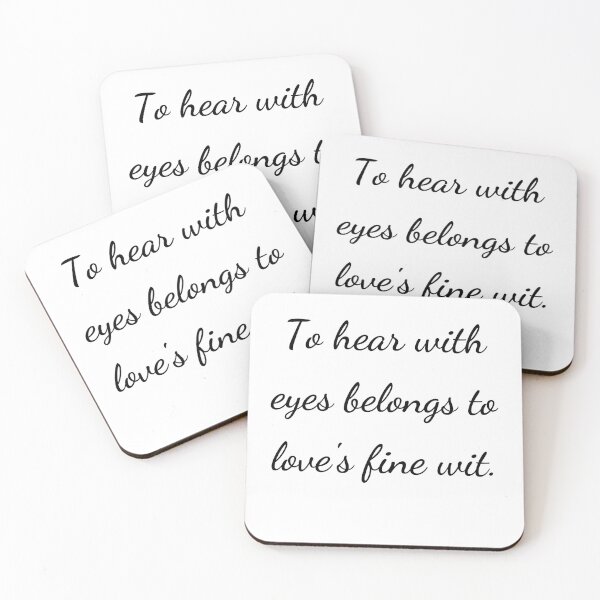 To hear with
eyes belongs
To hear with
eyes belongs to
love's fine wit.
To hear with
eyes belongs to
love's fine
To hear with
eyes belongs to
love's fine wit.